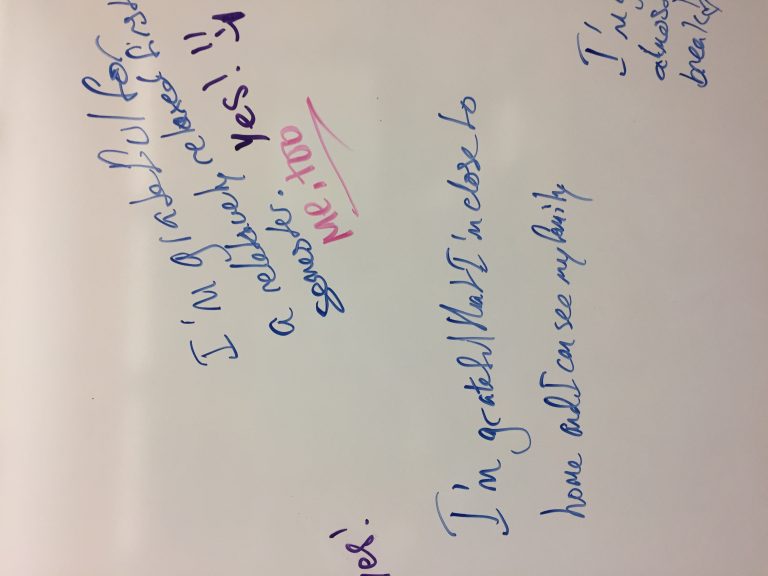 I'm grateful for
a relatively relaxed first
semester.
yes! !!
Me, too
I'm grateful that I'm close to
home and I can see my family
I'm
almost
break
yes!